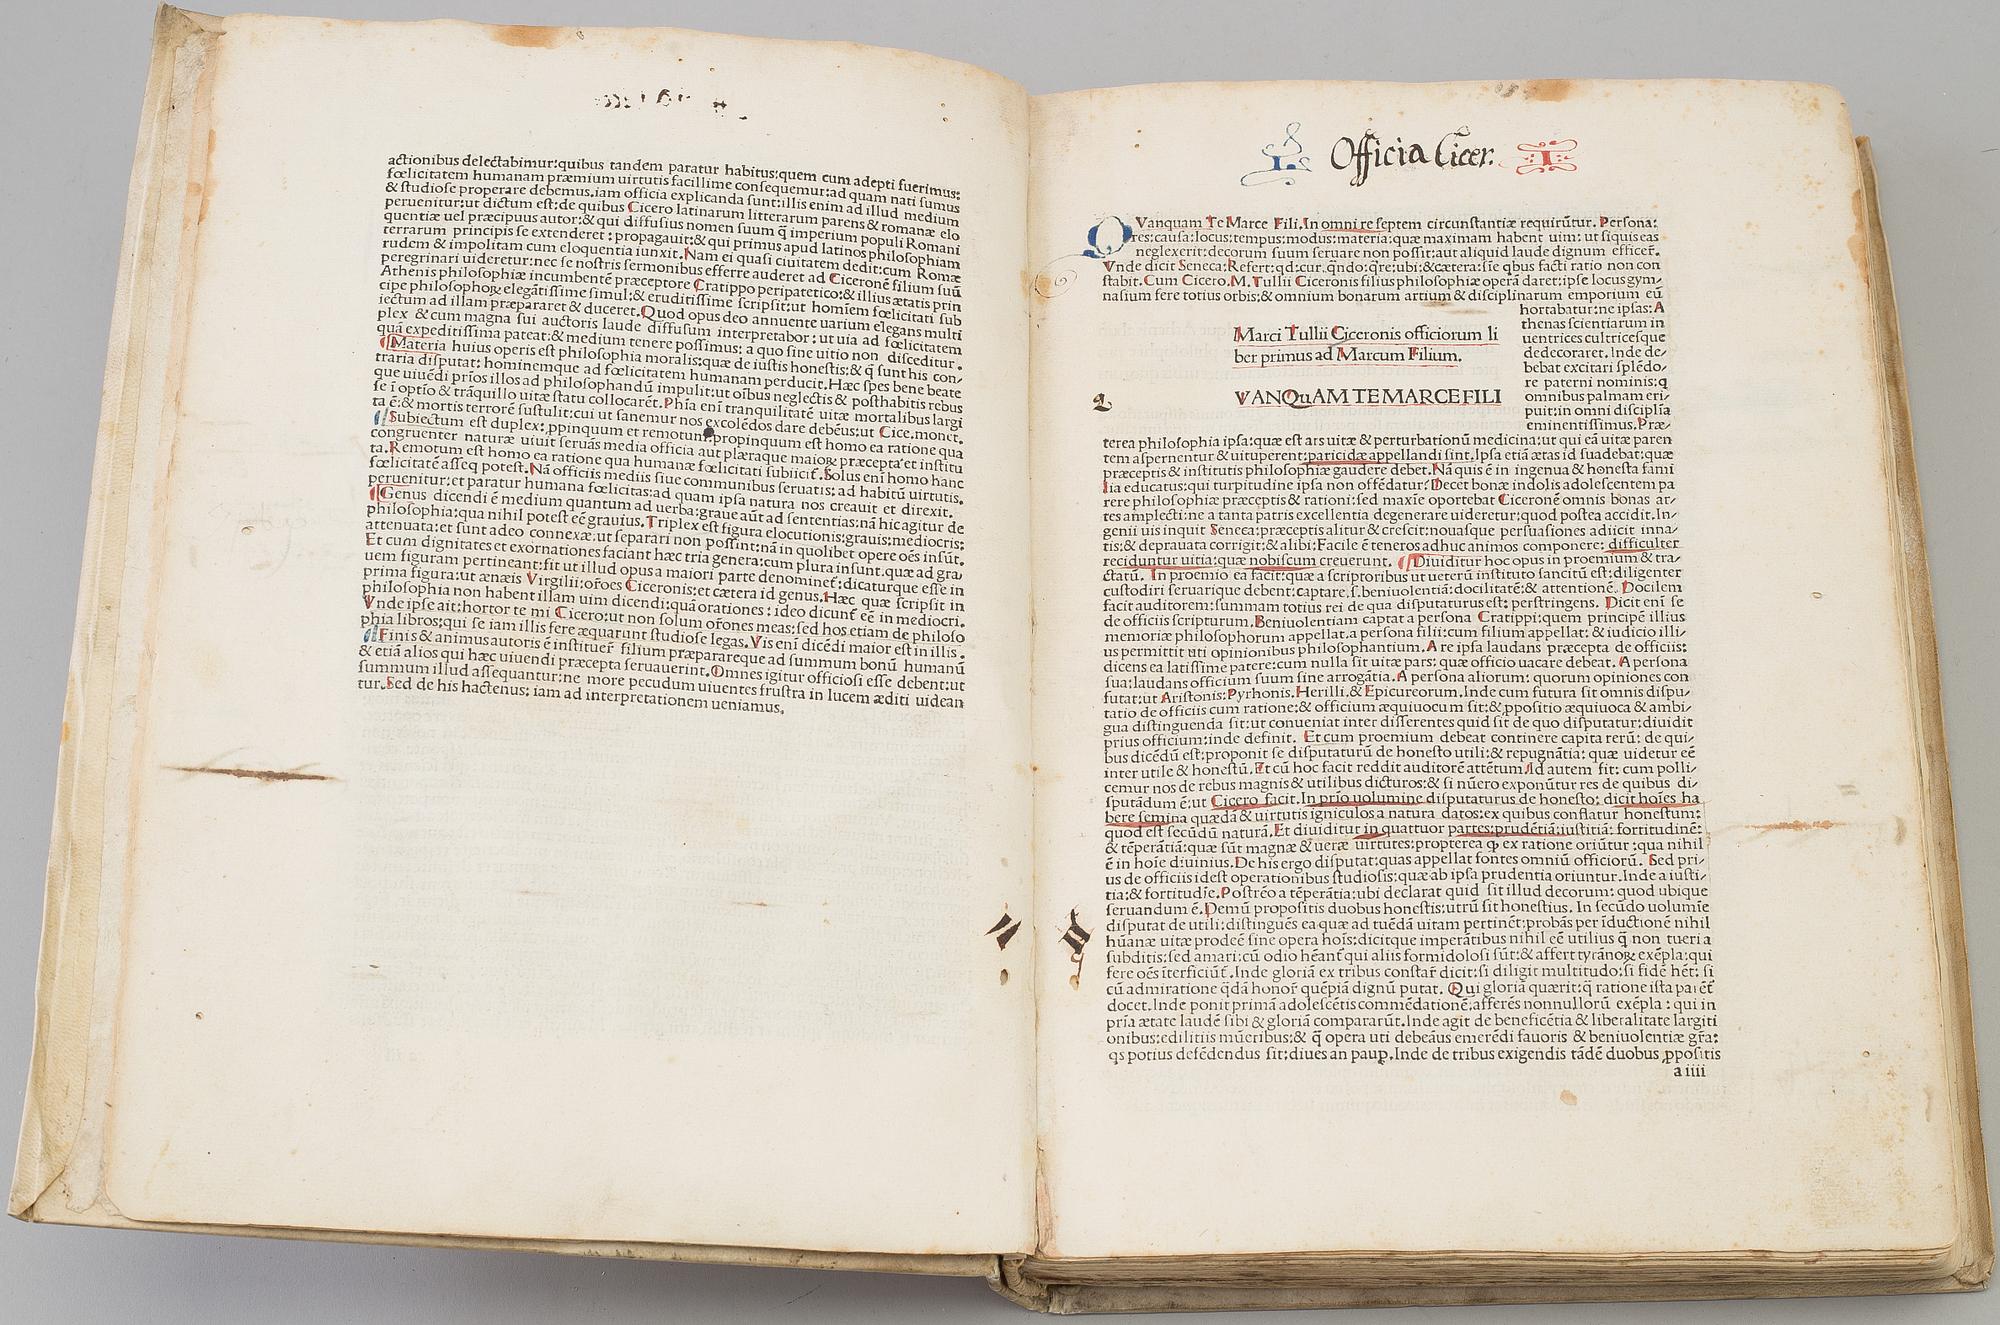 actionibus delectabimur:quibus tandem paratur habitus:quem cum adepti fuerimus:
fœlicitatem humanam præmium uirtutis facillime consequemur:ad quam nati sumus
& studiose properare debemus.iam officia explicanda sunt:illis enim ad illud medium
peruenitur:ut dictum est:de quibus Cicero latinarum litterarum parens & romanæ elo
quentiæ uel præcipuus autor:& qui diffusius nomen suum q̃ imperium populi Romani
terrarum principis se extenderet : propagauit:& qui primus apud latinos philosophiam
rudem & impolitam cum eloquentia iunxit.Nam ei quasi ciuitatem dedit:cum Romæ
peregrinari uideretur:nec se nostris sermonibus efferre auderet ad Ciceronē filium suũ
Athenis philosophiæ incumbentē præceptore Cratippo peripatetico:& illius ætatis prin
cipe philosophoꝝ elegãtissime simul:& eruditissime scripsit:ut homiem fœlicitati sub
iectum ad illam præpararet & duceret.Quod opus deo annuente uarium elegans multi
plex & cum magna sui auctoris laude diffusum interpretabor : ut uia ad fœlicitatem
quã expeditissima pateat:& medium tenere possimus: a quo sine uitio non disceditur.
Materia huius operis est philosophia moralis:quæ de iustis honestis:& q̃ sunt his con/
traria disputat: hominemque ad fœlicitatem humanam perducit.Hæc spes bene beate
que uiuēdi prĩos illos ad philosophandũ impulit:ut oĩbus neglectis & posthabitis rebus
se ĩ optĩo & trãquillo uitæ statu collocarēt.Phĩa enĩ tranquilitatē uitæ mortalibus largi
ta ē:& mortis terrorē sustulit:cui ut sanemur nos excolēdos dare debēus:ut Cice.monet.
Subiectum est duplex:ꝓpinquum et remotum:propinquum est homo ea ratione qua
congruenter naturæ uiuit seruãs media officia aut plæraque maioꝝ præcepta et institu
ta.Remotum est homo ea ratione qua humanæ fœlicitati subiicit̃.Solus enĩ homo hanc
fœlicitatē asseq potest.Nã officiis mediis siue communibus seruatis: ad habitũ uirtutis.
peruenitur:et paratur humana fœlicitas:ad quam ipsa natura nos creauit et direxit.
Genus dicendi ē medium quantum ad uerba:graue aũt ad sententias:nã hic agitur de
philosophia:qua nihil potest eē grauius.Triplex est figura elocutionis:grauis:mediocris:
attenuata:et sunt adeo connexæ:ut separari non possint:nã in quolibet opere oēs insũt.
Et cum dignitates et exornationes faciant hæc tria genera:cum plura insunt.quæ ad gra/
uem figuram pertineant:fit ut illud opus a maiori parte denominet̃:dicaturque esse in
prima figura:ut ænæis Virgilii:or̃oes Ciceronis:et cætera id genus.Hæc quæ scripsit in
philosophia non habent illam uim dicendi:quã orationes : ideo dicunt̃ eē in mediocri.
Vnde ipse ait:hortor te mi Cicero:ut non solum or̃ones meas:sed hos etiam de philoso
phia libros:qui se iam illis fere æquarunt studiose legas.Vis enĩ dicēdi maior est in illis.
Finis & animus autoris ē instituer̃ filium præparareque ad summum bonũ humanũ
& etiã alios qui hæc uiuendi præcepta seruauerint.Omnes igitur officiosi esse debent:ut
summum illud assequantur:ne more pecudum uiuentes frustra in lucem æditi uidean
tur.Sed de his hactenus: iam ad interpretationem ueniamus.
L Officia Cicer. I
QVanquam Te Marce Fili.In omni re septem circunstantiæ requirũtur. Persona:
res:causa:locus:tempus:modus:materia:quæ maximam habent uim: ut siquis eas
neglexerit:decorum suum seruare non possit:aut aliquid laude dignum efficer̃.
Vnde dicit Seneca:Refert:qd:cur.qñdo:qre:ubi:&cætera:sĩe qbus facti ratio non con
stabit. Cum Cicero.M.Tullii Ciceronis filius philosophiæ operã daret:ipse locus gym/
nasium fere totius orbis:& omnium bonarum artium & disciplinarum emporium eũ
hortabatur:ne ipsas: A
thenas scientiarum in
uentrices cultricesque
dedecoraret. Inde de/
bebat excitari splēdo/
re paterni nominis:q
omnibus palmam eri/
puit:in omni disciplĩa
eminentissimus.Præ/
Marci Tullii Ciceronis officiorum li
ber primus ad Marcum Filium.
VANQuAM TE MARCE FILI
terea philosophia ipsa:quæ est ars uitæ & perturbationũ medicina:ut qui eã uitæ paren
tem aspernentur & uituperent:paricidæ appellandi sint.Ipsa etiã ætas id suadebat:quæ
præceptis & institutis philosophiæ gaudere debet.Nã quis ē in ingenua & honesta fami
lia educatus:qui turpitudine ipsa non offēdatur?Decet bonæ indolis adolescentem pa
rere philosophiæ præceptis & rationi:sed maxĩe oportebat Ciceronē omnis bonas ar/
tes amplecti:ne a tanta patris excellentia degenerare uideretur:quod postea accidit.In/
genii uis inquit Seneca:præceptis alitur & crescit:nouasque persuasiones adiicit inna/
tis:& deprauata corrigit:& alibi:Facile ē teneros adhuc animos componere: difficulter
reciduntur uitia:quæ nobiscum creuerunt. Diuiditur hoc opus in proemium & tra/
ctatũ. In proemio ea facit:quæ a scriptoribus ut ueterũ instituto sancitũ est:diligenter
custodiri seruarique debent:captare.s.beniuolentiã:docilitatē:& attentionē.Docilem
facit auditorem:summam totius rei de qua disputaturus est: perstringens. Dicit enĩ se
de officiis scripturum.Beniuolentiam captat a persona Cratippi:quem principē illius
memoriæ philosophorum appellat.a persona filii:cum filium appellat:& iudicio illi/
us permittit uti opinionibus philosophantium.A re ipsa laudans præcepta de officiis:
dicens ea latissime patere:cum nulla sit uitæ pars: quæ officio uacare debeat. A persona
sua:laudans officium suum sine arrogãtia.A persona aliorum: quorum opiniones con
futat:ut Aristonis:Pyrhonis.Herilli.& Epicureorum.Inde cum futura sit omnis dispu/
tatio de officiis cum ratione:& officium æquiuocum sit:& ꝓpositio æquiuoca & ambi/
gua distinguenda sit:ut conueniat inter disserentes quid sit de quo disputatur:diuidit
prius officium:inde definit. Et cum proemium debeat continere capita rerũ: de qui/
bus dicēdũ est:proponit se disputaturũ de honesto utili:& repugnãtia: quæ uidetur eē
inter utile & honestũ.Et cũ hoc facit reddit auditorē attētum.Id autem fit: cum polli/
cemur nos de rebus magnis & utilibus dicturos:& si nũero exponũtur res de quibus di/
sputãdum ē:ut Cicero facit.In prĩo uolumine disputaturus de honesto: dicit hoĩes ha
bere semina quædã & uirtutis igniculos a natura datos:ex quibus conflatur honestum:
quod est secũdũ naturã.Et diuiditur in quattuor partes:prudētiã:iustitiã: fortitudinē:
& tēperãtiã:quæ sũt magnæ & ueræ uirtutes:propterea ꝙ ex ratione oriũtur :qua nihil
ē in hoĩe diuinius.De his ergo disputat:quas appellat fontes omniũ officiorũ. Sed pri/
us de officiis idest operationibus studiosis:quæ ab ipsa prudentia oriuntur.Inde a iusti/
tia:& fortitudĩe.Postrēo a tēperãtia:ubi declarat quid sit illud decorum: quod ubique
seruandum ē.Demũ propositis duobus honestis:utrũ sit honestius. In secũdo uolumĩe
disputat de utili:distinguēs ea quæ ad tuēdã uitam pertinēt:probãs per ĩductionē nihil
hũanæ uitæ prodeē sine opera hoĩs:dicitque imperãtibus nihil eē utilius q̃ non tueri a
subditis:sed amari:cũ odio hēant̃ qui aliis formidolosi sũt:& affert tyrãnoꝝ exēpla:qui
fere oēs ĩterficiũt̃.Inde gloriã ex tribus constar̃ dicit:si diligit multitudo:si fidē hēt: si
cũ admiratione qdã honor̃ quēpiã dignũ putat. Qui gloriã quærit:q̃ ratione ista par̃ēt̃
docet.Inde ponit primã adolescētis commēdationē:afferēs nonnullorũ exēpla : qui in
prĩa ætate laudē sibi & gloriã compararũt.Inde agit de beneficētia & liberalitate largiti
onibus:edilitiis mũeribus:& q̃ opera uti debeãus emerēdi fauoris & beniuolentiæ gr̃a:
qs potius defēdendus sit:diues an paup̱.Inde de tribus exigendis tãdē duobus ꝓpositis
a iiii